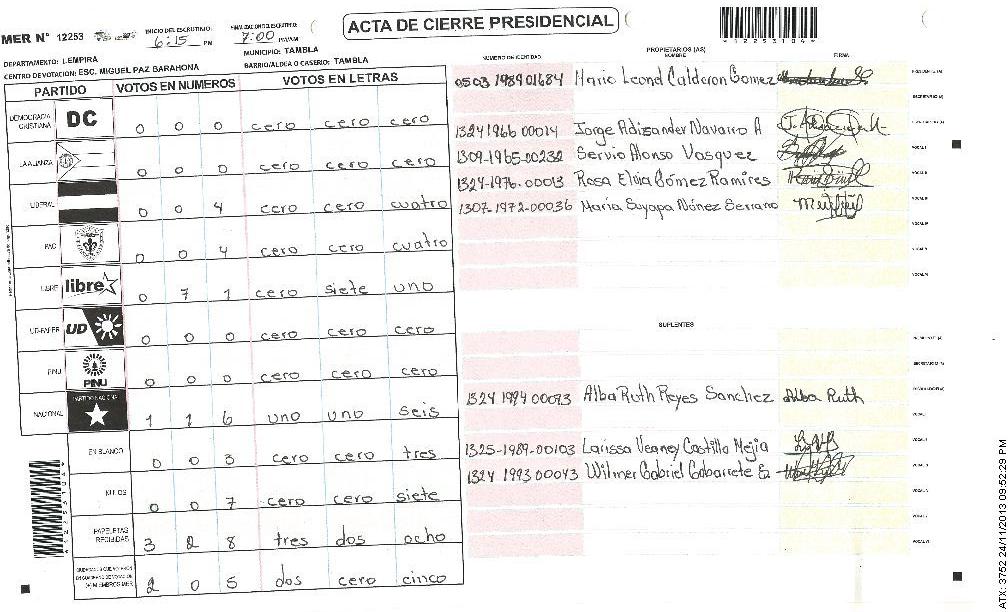 ACTA DE CIERRE PRESIDENCIAL
MER N° 12253
INICIO DEL ESCRUTINIO: 6:15 PM
FINALIZACION DEL ESCRUTINIO: 7:00 PM/AM
DEPARTAMENTO: LEMPIRA
MUNICIPIO: TAMBLA
CENTRO DE VOTACION: ESC. MIGUEL PAZ BARAHONA
BARRIO/ALDEA O CASERIO: TAMBLA
12253104
PARTIDO VOTOS EN NUMEROS VOTOS EN LETRAS
DEMOCRACIA CRISTIANA DC 0 0 0 cero cero cero
LA ALIANZA 0 0 0 cero cero cero
LIBERAL 0 0 4 cero cero cuatro
PAC 0 0 4 cero cero cuatro
LIBRE libre 0 7 1 cero siete uno
UD-FAPER UD 0 0 0 cero cero cero
PINU PINU 0 0 0 cero cero cero
NACIONAL PARTIDO NACIONAL 1 1 6 uno uno seis
EN BLANCO 0 0 3 cero cero tres
NULOS 0 0 7 cero cero siete
PAPELETAS RECIBIDAS 3 2 8 tres dos ocho
2 0 5 dos cero cinco
12253104
PROPIETARIOS (AS)
NUMERO DE IDENTIDAD NOMBRE FIRMA
0503 1989 01684 Mario Leonel Calderon Gomez PRESIDENTE (A)
SECRETARIO (A)
1324 1966 00014 Jorge Adizander Navarro A
1309-1965-00232 Servio Alonso Vasquez VOCAL I
1324-1976-00013 Rosa Elvia Gómez Ramires VOCAL II
1307-1972-00036 María Suyapa Núnez Serrano VOCAL III
VOCAL IV
VOCAL V
VOCAL VI
SUPLENTES
PRESIDENTE (A)
SECRETARIO (A)
1324 1994 00093 Alba Ruth Reyes Sanchez Alba Ruth ESCRUTADOR (A)
VOCAL I
1325-1989-00103 Larissa Veaney Castillo Mejia VOCAL II
1324 1993 00043 Wilmer Gabriel Gabarrete VOCAL III
VOCAL IV
VOCAL V
VOCAL VI
ATX: 3752 24/11/2013 09:52:29 PM